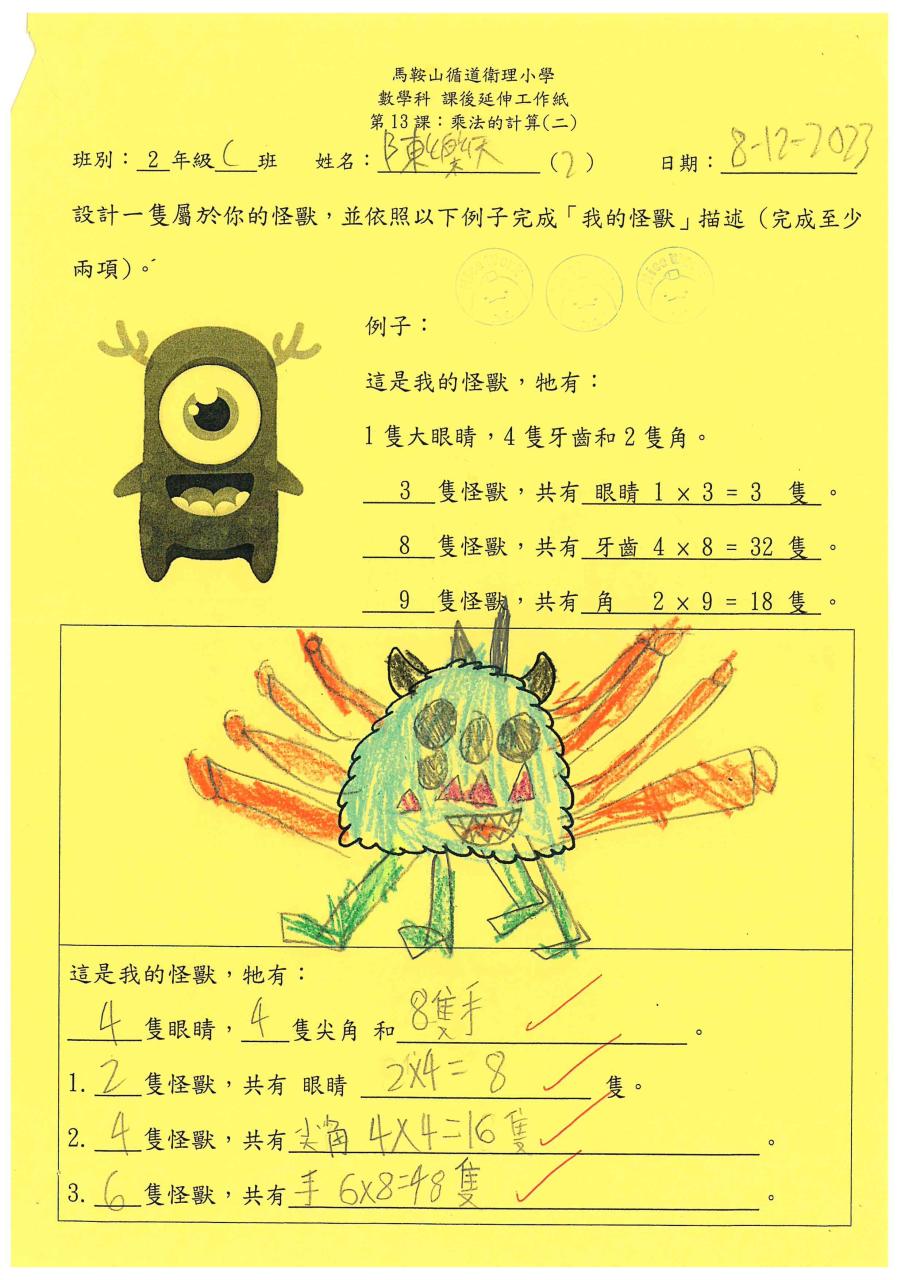 馬鞍山循道衛理小學
數學科 課後延伸工作紙
第 13 課：乘法的計算(二)
班別：2 年級 C 班 姓名：陳樂天 (2) 日期：8-12-2023
設計一隻屬於你的怪獸，並依照以下例子完成「我的怪獸」描述（完成至少
兩項）。
例子：
這是我的怪獸，牠有：
1 隻大眼睛，4 隻牙齒和 2 隻角。
3 隻怪獸，共有 眼睛 1 × 3 = 3 隻 。
8 隻怪獸，共有 牙齒 4 × 8 = 32 隻 。
9 隻怪獸，共有 角 2 × 9 = 18 隻 。
這是我的怪獸，牠有：
4 隻眼睛，4 隻尖角 和 8隻手 。
1. 2 隻怪獸，共有 眼睛 2×4=8 隻。
2. 4 隻怪獸，共有 尖角 4×4=16 隻 。
3. 6 隻怪獸，共有 手 6×8=48 隻 。